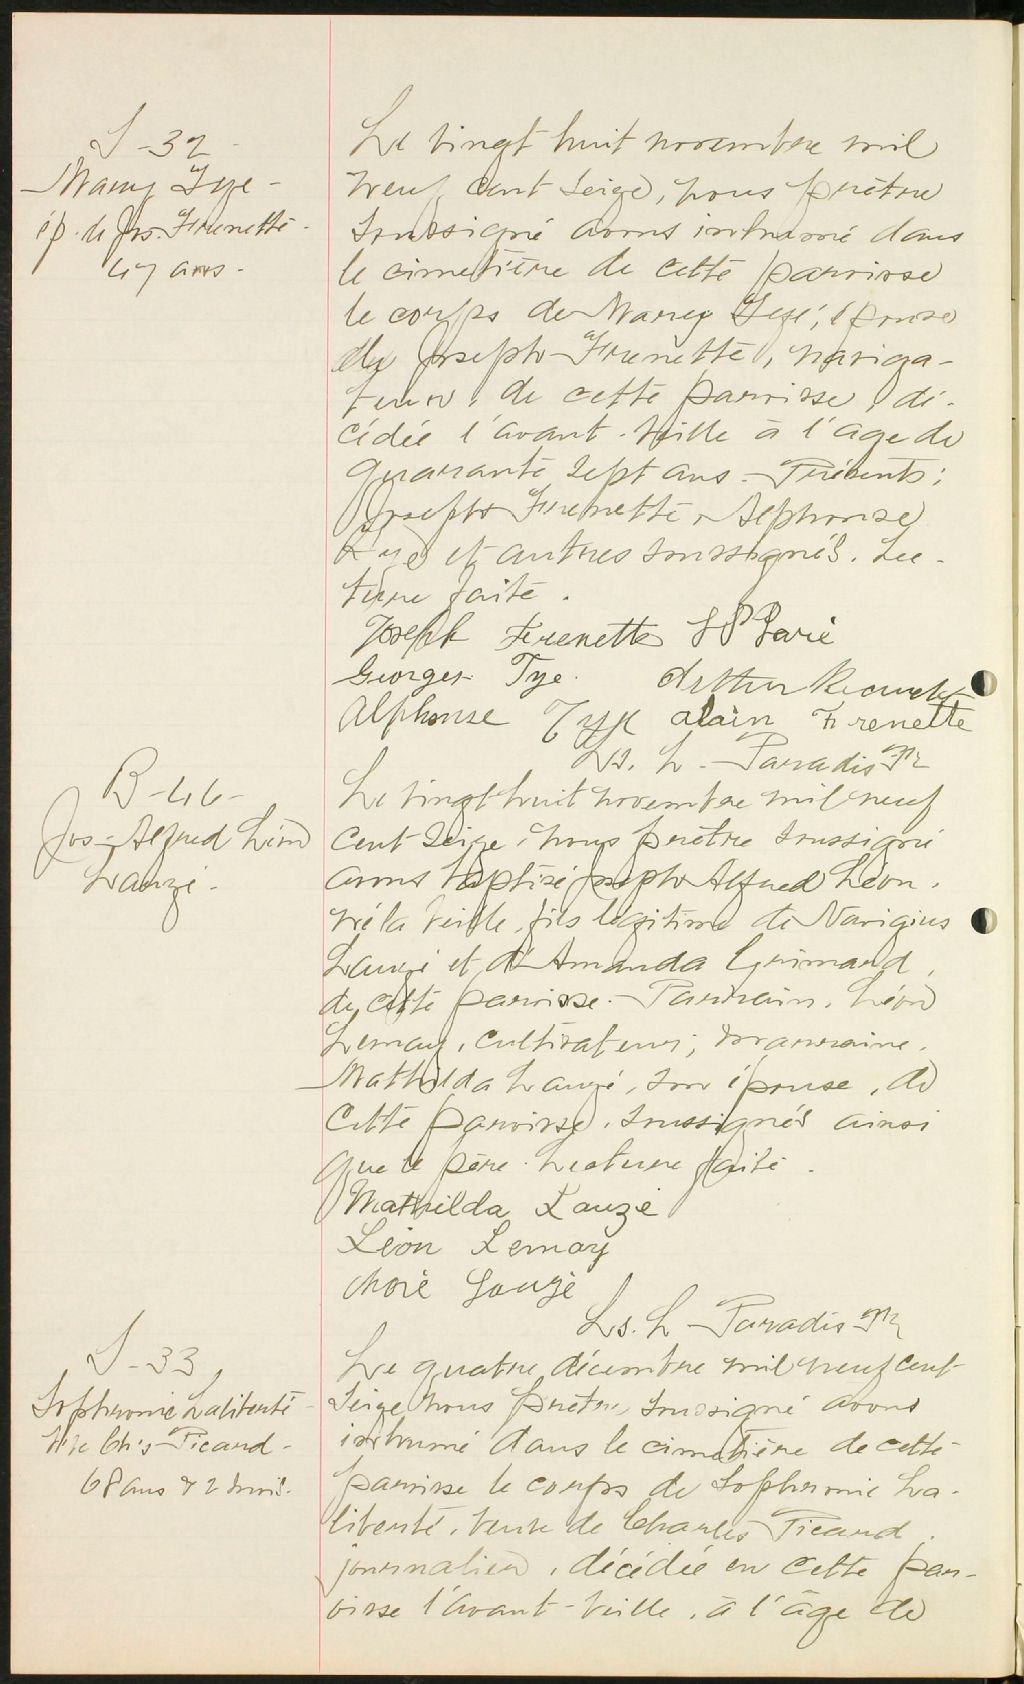 S-32
Mary Tye -
ép. de Jos. Frenette -
47 ans -
Le vingt huit novembre mil
neuf cent seize, nous prêtre
soussigné avons inhumé dans
le cimetière de cette paroisse
le corps de Mary Tye, épouse
de Joseph Frenette, naviga-
teur, de cette paroisse, dé-
cédée l'avant-veille à l'âge de
quarante sept ans - Présents:
Joseph Frenette, Alphonse
Tye et autres soussignés. Lec-
ture faite.
Joseph Frenette
Georges Tye. Arthur
Alphonse Tye alain Frenette
Ls. L. Paradis Ptr
B-46-
Jos-Alfred Léon
Lauzé -
Le vingt huit novembre mil neuf
cent seize, nous prêtre soussigné
avons baptisé Joseph Alfred Léon,
né la veille, fils légitime de Navigius
Lauzé et d'Amanda Grimard,
de cette paroisse. - Parrain, Léon
Lemay, cultivateur; marraine,
Mathilda Lauzé, son épouse, de
cette paroisse, soussignés ainsi
que le père. Lecture faite.
Mathilda Lauzé
Léon Lemay
Lauzé
Ls. L. Paradis Ptr
S-33
Sophronie Laliberté -
Vve Chs Picard -
68 ans & 2 mois.
Le quatre décembre mil neuf cent
seize nous prêtre, soussigné avons
inhumé dans le cimetière de cette
paroisse le corps de Sophronie La-
liberté, veuve de Charles Picard,
journalier, décédée en cette par-
oisse l'avant-veille, à l'âge de